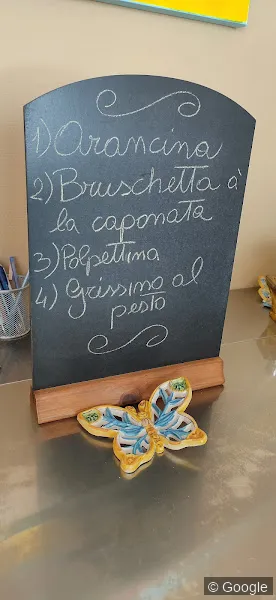 1) Arancina
2) Bruschetta à
la caponata
3) Polpettina
4) Grissino al
pesto
© Google